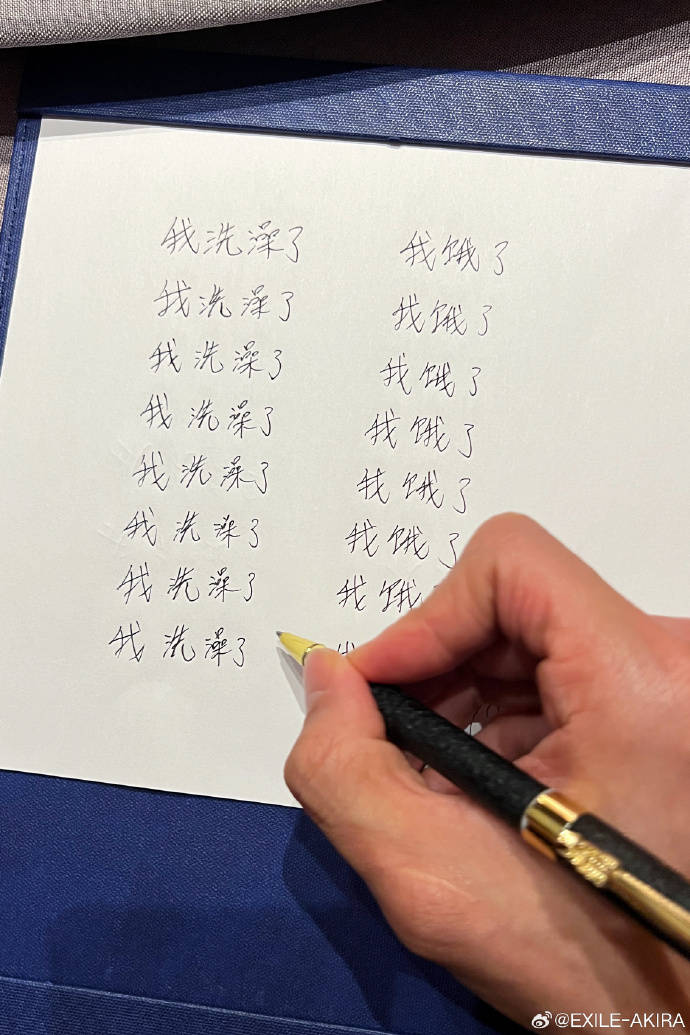 我洗澡了 我饿了
我洗澡了 我饿了
我洗澡了 我饿了
我洗澡了 我饿了
我洗澡了 我饿了
我洗澡了 我饿了
我洗澡了 我饿
我洗澡了
@EXILE-AKIRA